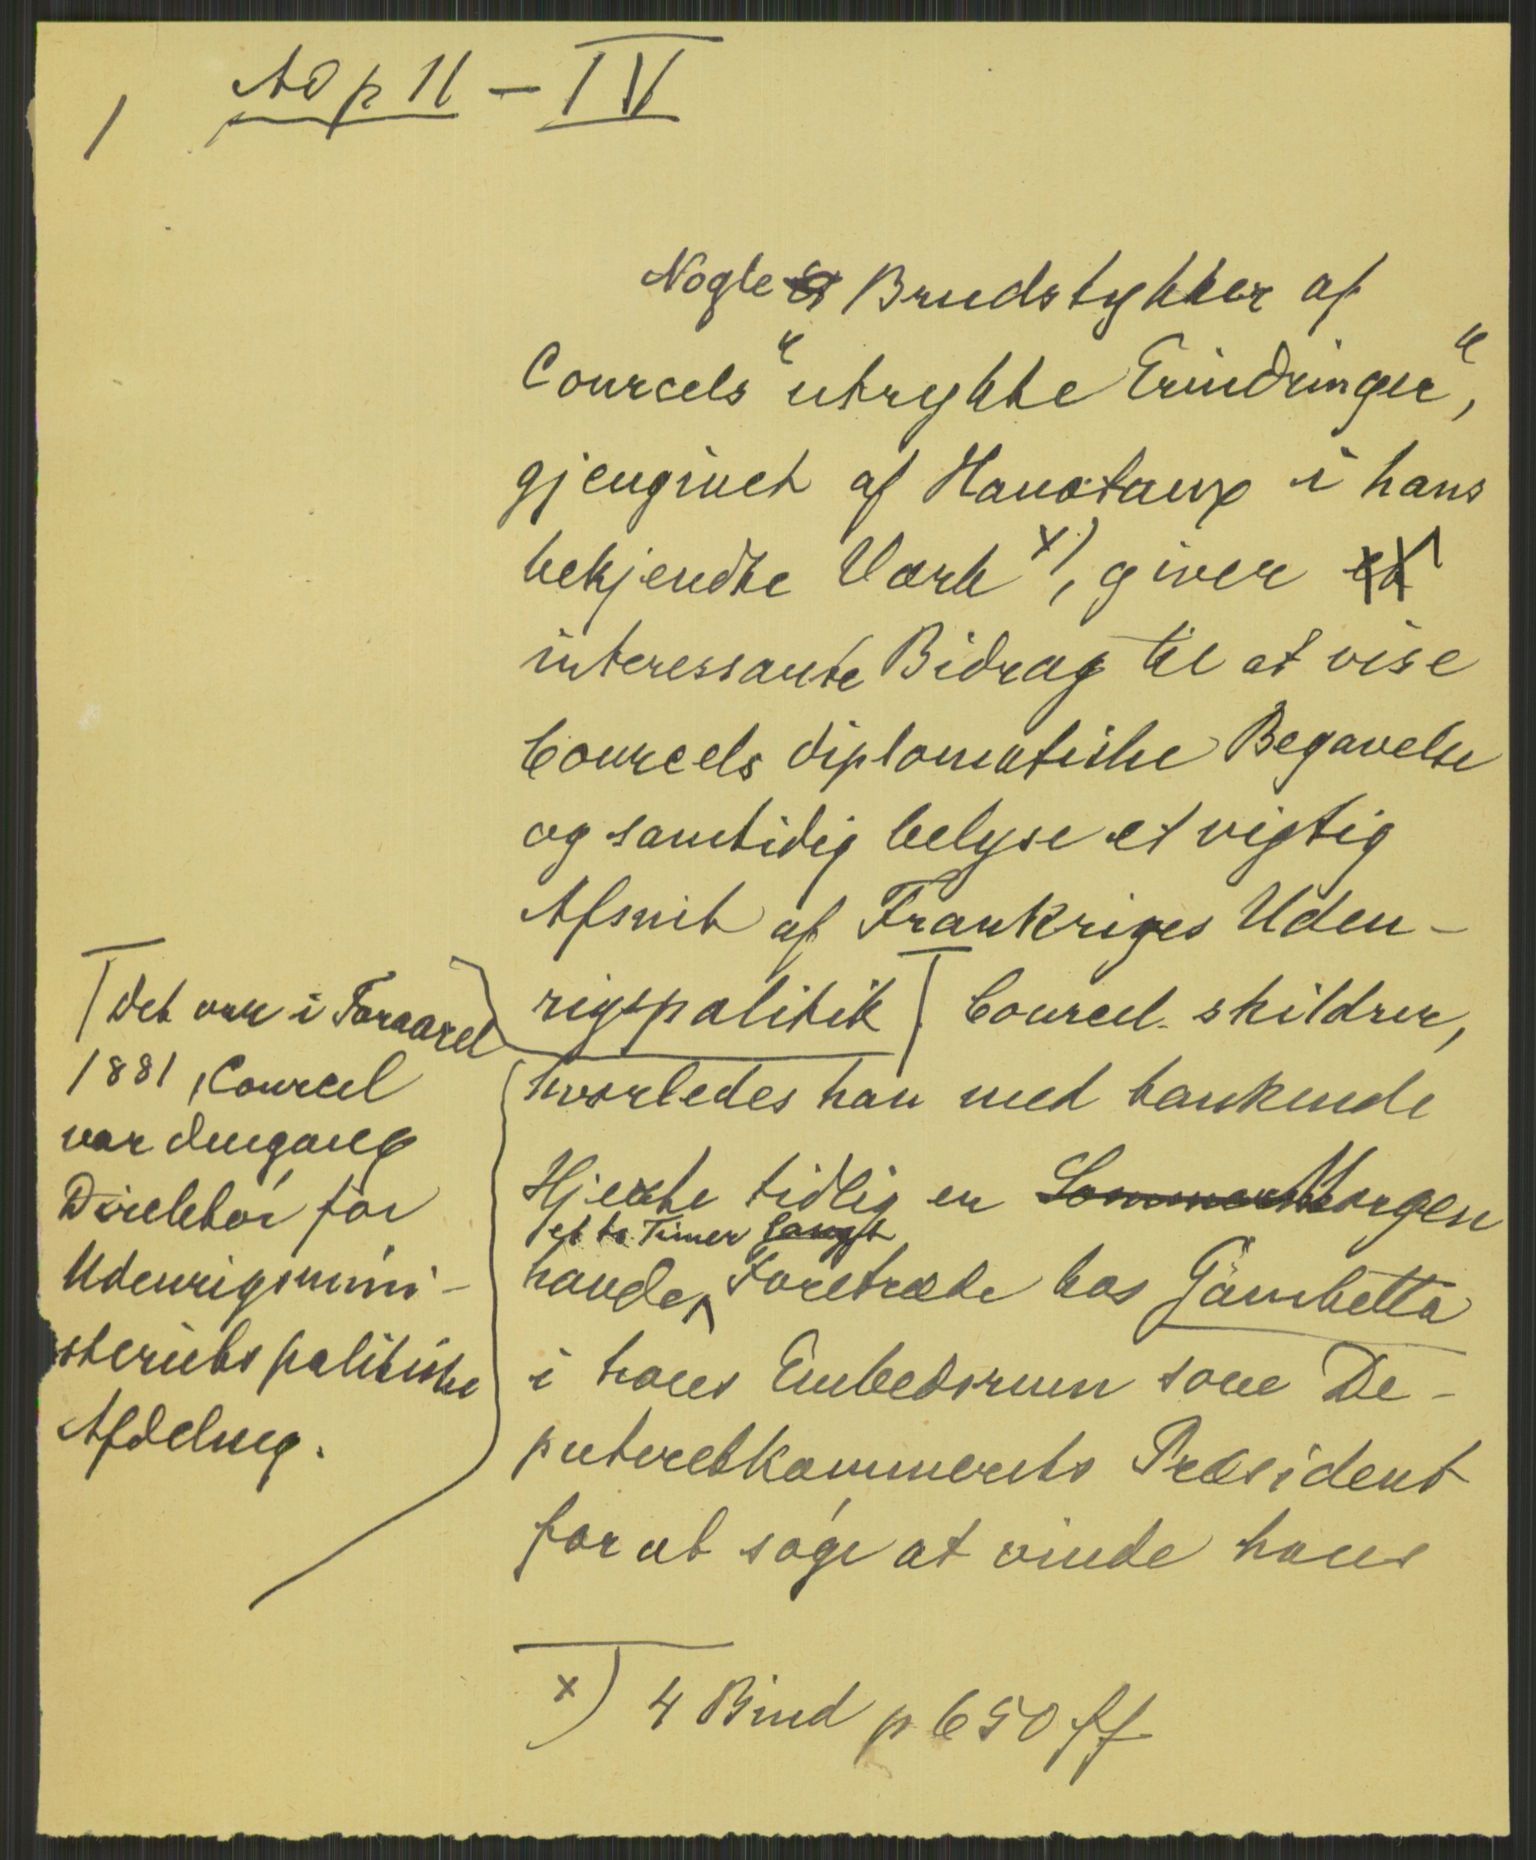 1 Ad p 11 – IV
Nogle Brudstykker af
Courcels "utrykte Erindringer",
gjengivet af Hanotaux i hans
bekjendte Værk x), giver et
interessante Bidrag til at vise
Courcels diplomatiske Begavelse
og samtidig belyse et vigtig
Afsnit af Frankriges Uden-
rigspolitik. Courcel skildrer,
hvorledes han med bankende
Hjerte tidlig en Sommer Morgen
et to Timer langt
havde Foretræde hos Gambetta
i hans Embedsrum som De-
puteretkammerets Præsident
for at søge at vinde hans
Det var i Foraaret
1881, Courcel
var dengang
Direktør for
Udenrigsmini-
steriets politiske
Afdeling.
x) 4 Bind p 650 ff